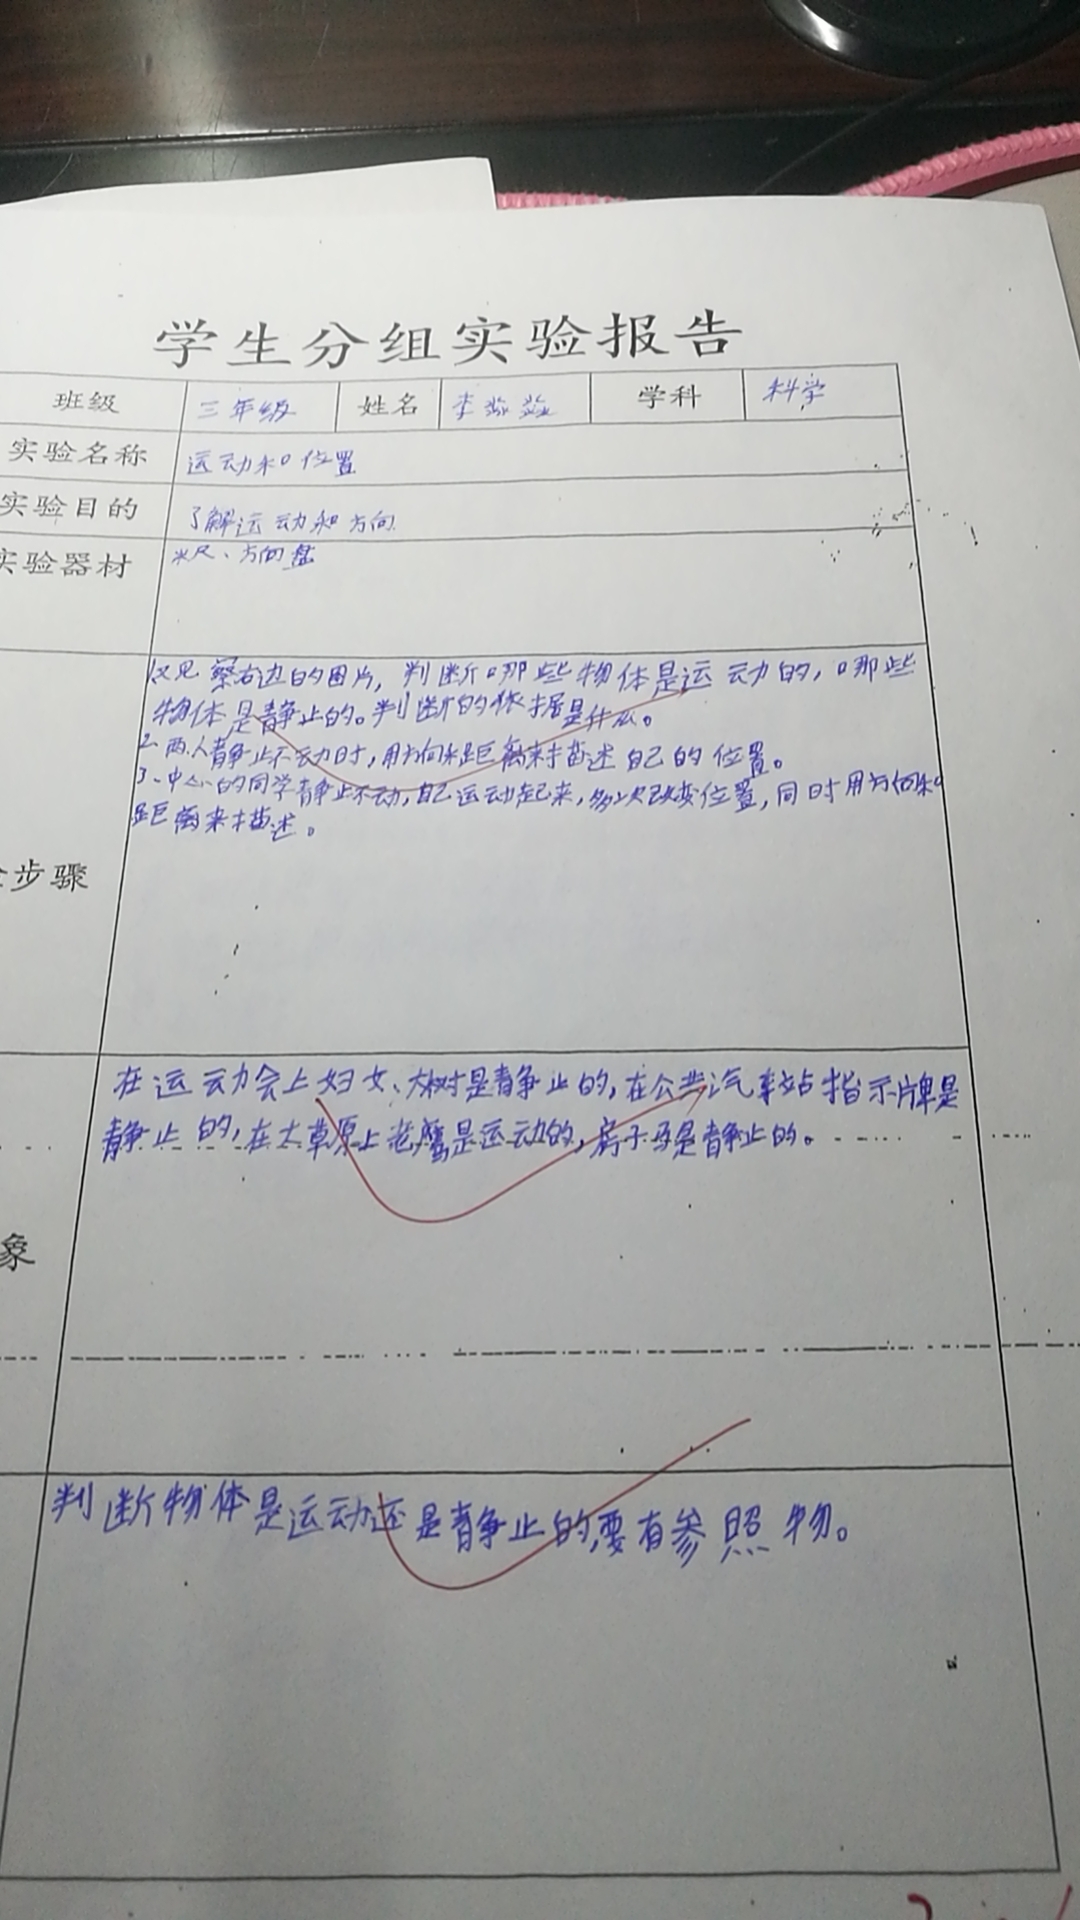 学生分组实验报告
班级 三年级 姓名 李 学科 科学
实验名称 运动和位置
实验目的 了解运动和方向
实验器材 米尺、方向盘
观察右边的图片，判断哪些物体是运动的，哪些
物体是静止的。判断的依据是什么。
2、两人静止不动时，用方向和距离来描述自己的位置。
3、中心的同学静止不动，自己运动起来，多次改变位置，同时用方向和
距离来描述。
步骤
在运动会上妇女、大树是静止的，在公共汽车站指示牌是
静止的，在大草原上老鹰是运动的，房子马是静止的。
象
判断物体是运动还是静止的，要有参照物。